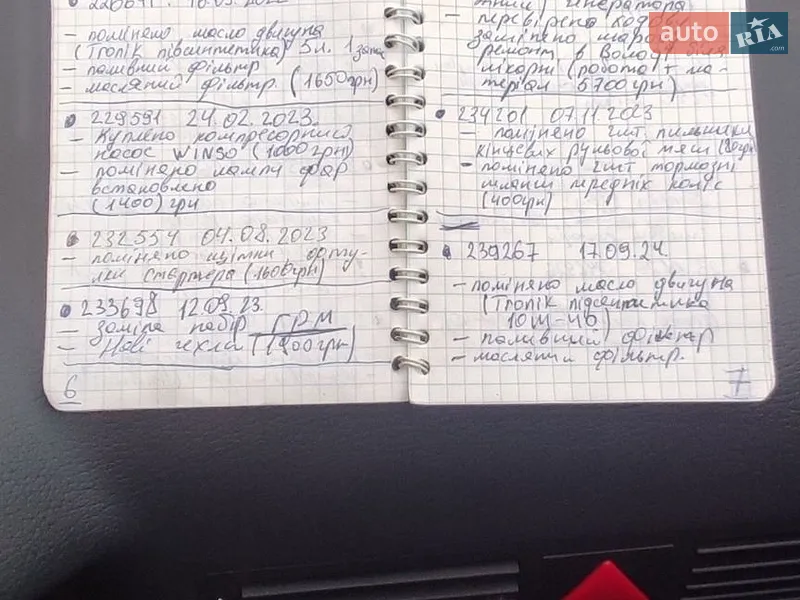 - помінено масло двигуна
(Тропік півсинтетика) 5л.
- паливний фільтр
- масляний фільтр (1650грн)
229591 24.02.2023.
- Куплено компресорний
насос WINSO (1000 грн)
- помінено лампи фар
встановлено
(1400) грн
232554 04.08.2023
- помінено щітки, 
стартера (1600грн)
233698 12.09.23.
- заміна набір ГРМ
- Нові чехли (1900грн)
6
генератора
- перевірено ходову
замінено
ремонт в
лікарні (робота + ма-
теріал 5700грн)
234201 07.11.2023
- помінено 2шт. пильники
кінцевих рульової тяги
- помінено 2шт тормозні
шланги передніх коліс
(400грн)
239267 17.09.24.
- помінено масло двигуна
(Тропік півсинтетика
10W-40)
- паливний фільтр
- масляний фільтр.
7
auto RIA
.com